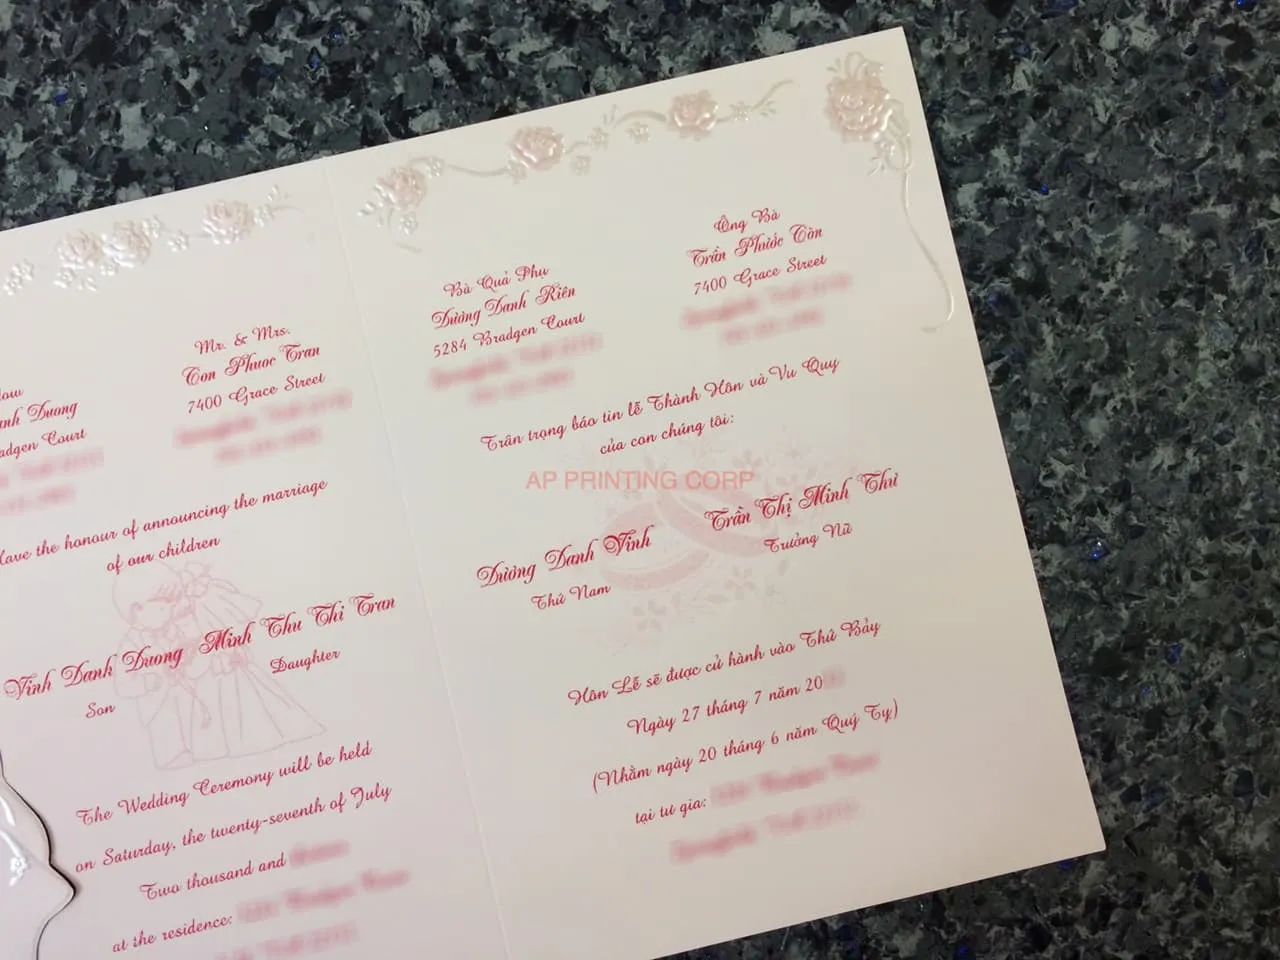 Mr. & Mrs.
Ton Phuoc Tran
7400 Grace Street
Court
have the honour of announcing the marriage
of our children
Vinh Danh Duong
Son
Minh Thu Thi Tran
Daughter
The Wedding Ceremony will be held
on Saturday, the twenty-seventh of July
Two thousand and
at the residence:
Bà Quả Phụ
Dương Danh Riên
5284 Bradgen Court
Ông Bà
Trần Phước Tòn
7400 Grace Street
Trân trọng báo tin lễ Thành Hôn và Vu Quy
của con chúng tôi:
AP PRINTING CORP
Dương Danh Vinh
Thứ Nam
Trần Thị Minh Thư
Trưởng Nữ
Hôn Lễ sẽ được cử hành vào Thứ Bảy
Ngày 27 tháng 7 năm 20
(Nhằm ngày 20 tháng 6 năm Quý Tỵ)
tại tư gia: